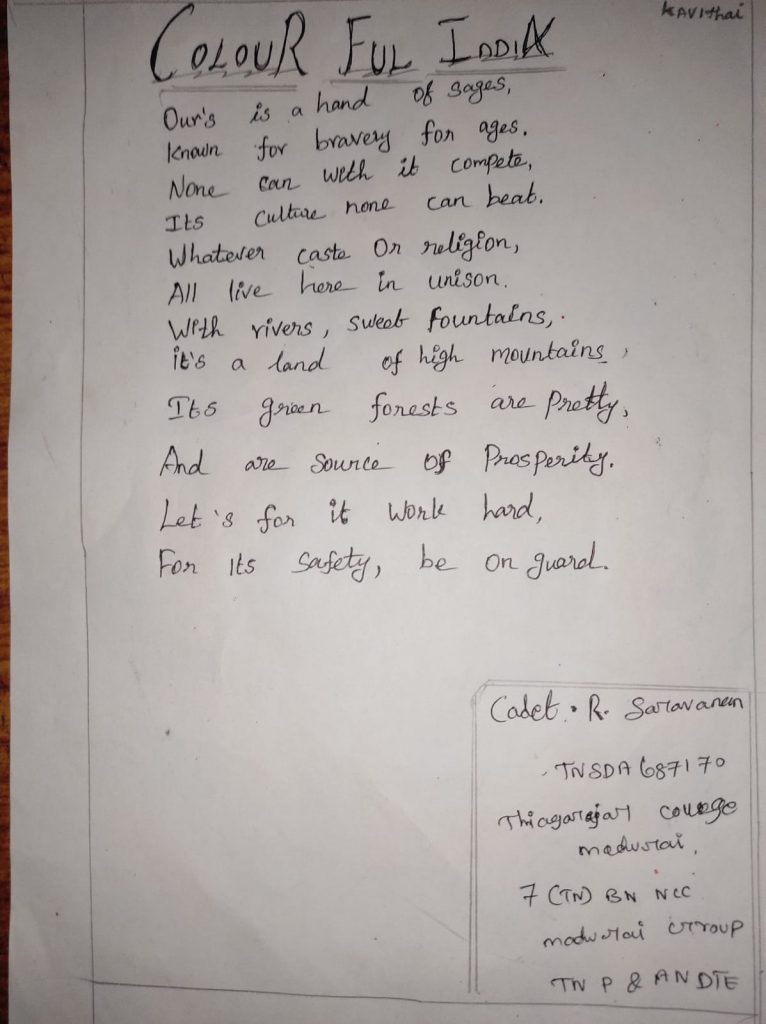 KAVIthai
COLOUR FUL INDIA
Our's is a hand of sages,
Known for bravery for ages.
None can with it compete,
Its culture none can beat.
Whatever caste Or religion,
All live here in unison.
With rivers, sweet fountains,
it's a land of high mountains,
Its green forests are Pretty,
And are Source of Prosperity.
Let's for it Work hard,
For Its Safety, be on guard.
Cadet. R. Saravanan
TNSDA 687170
Thiagarajar college
madurai.
7 (TN) BN NCC
madurai Group
TN P & AN DTE